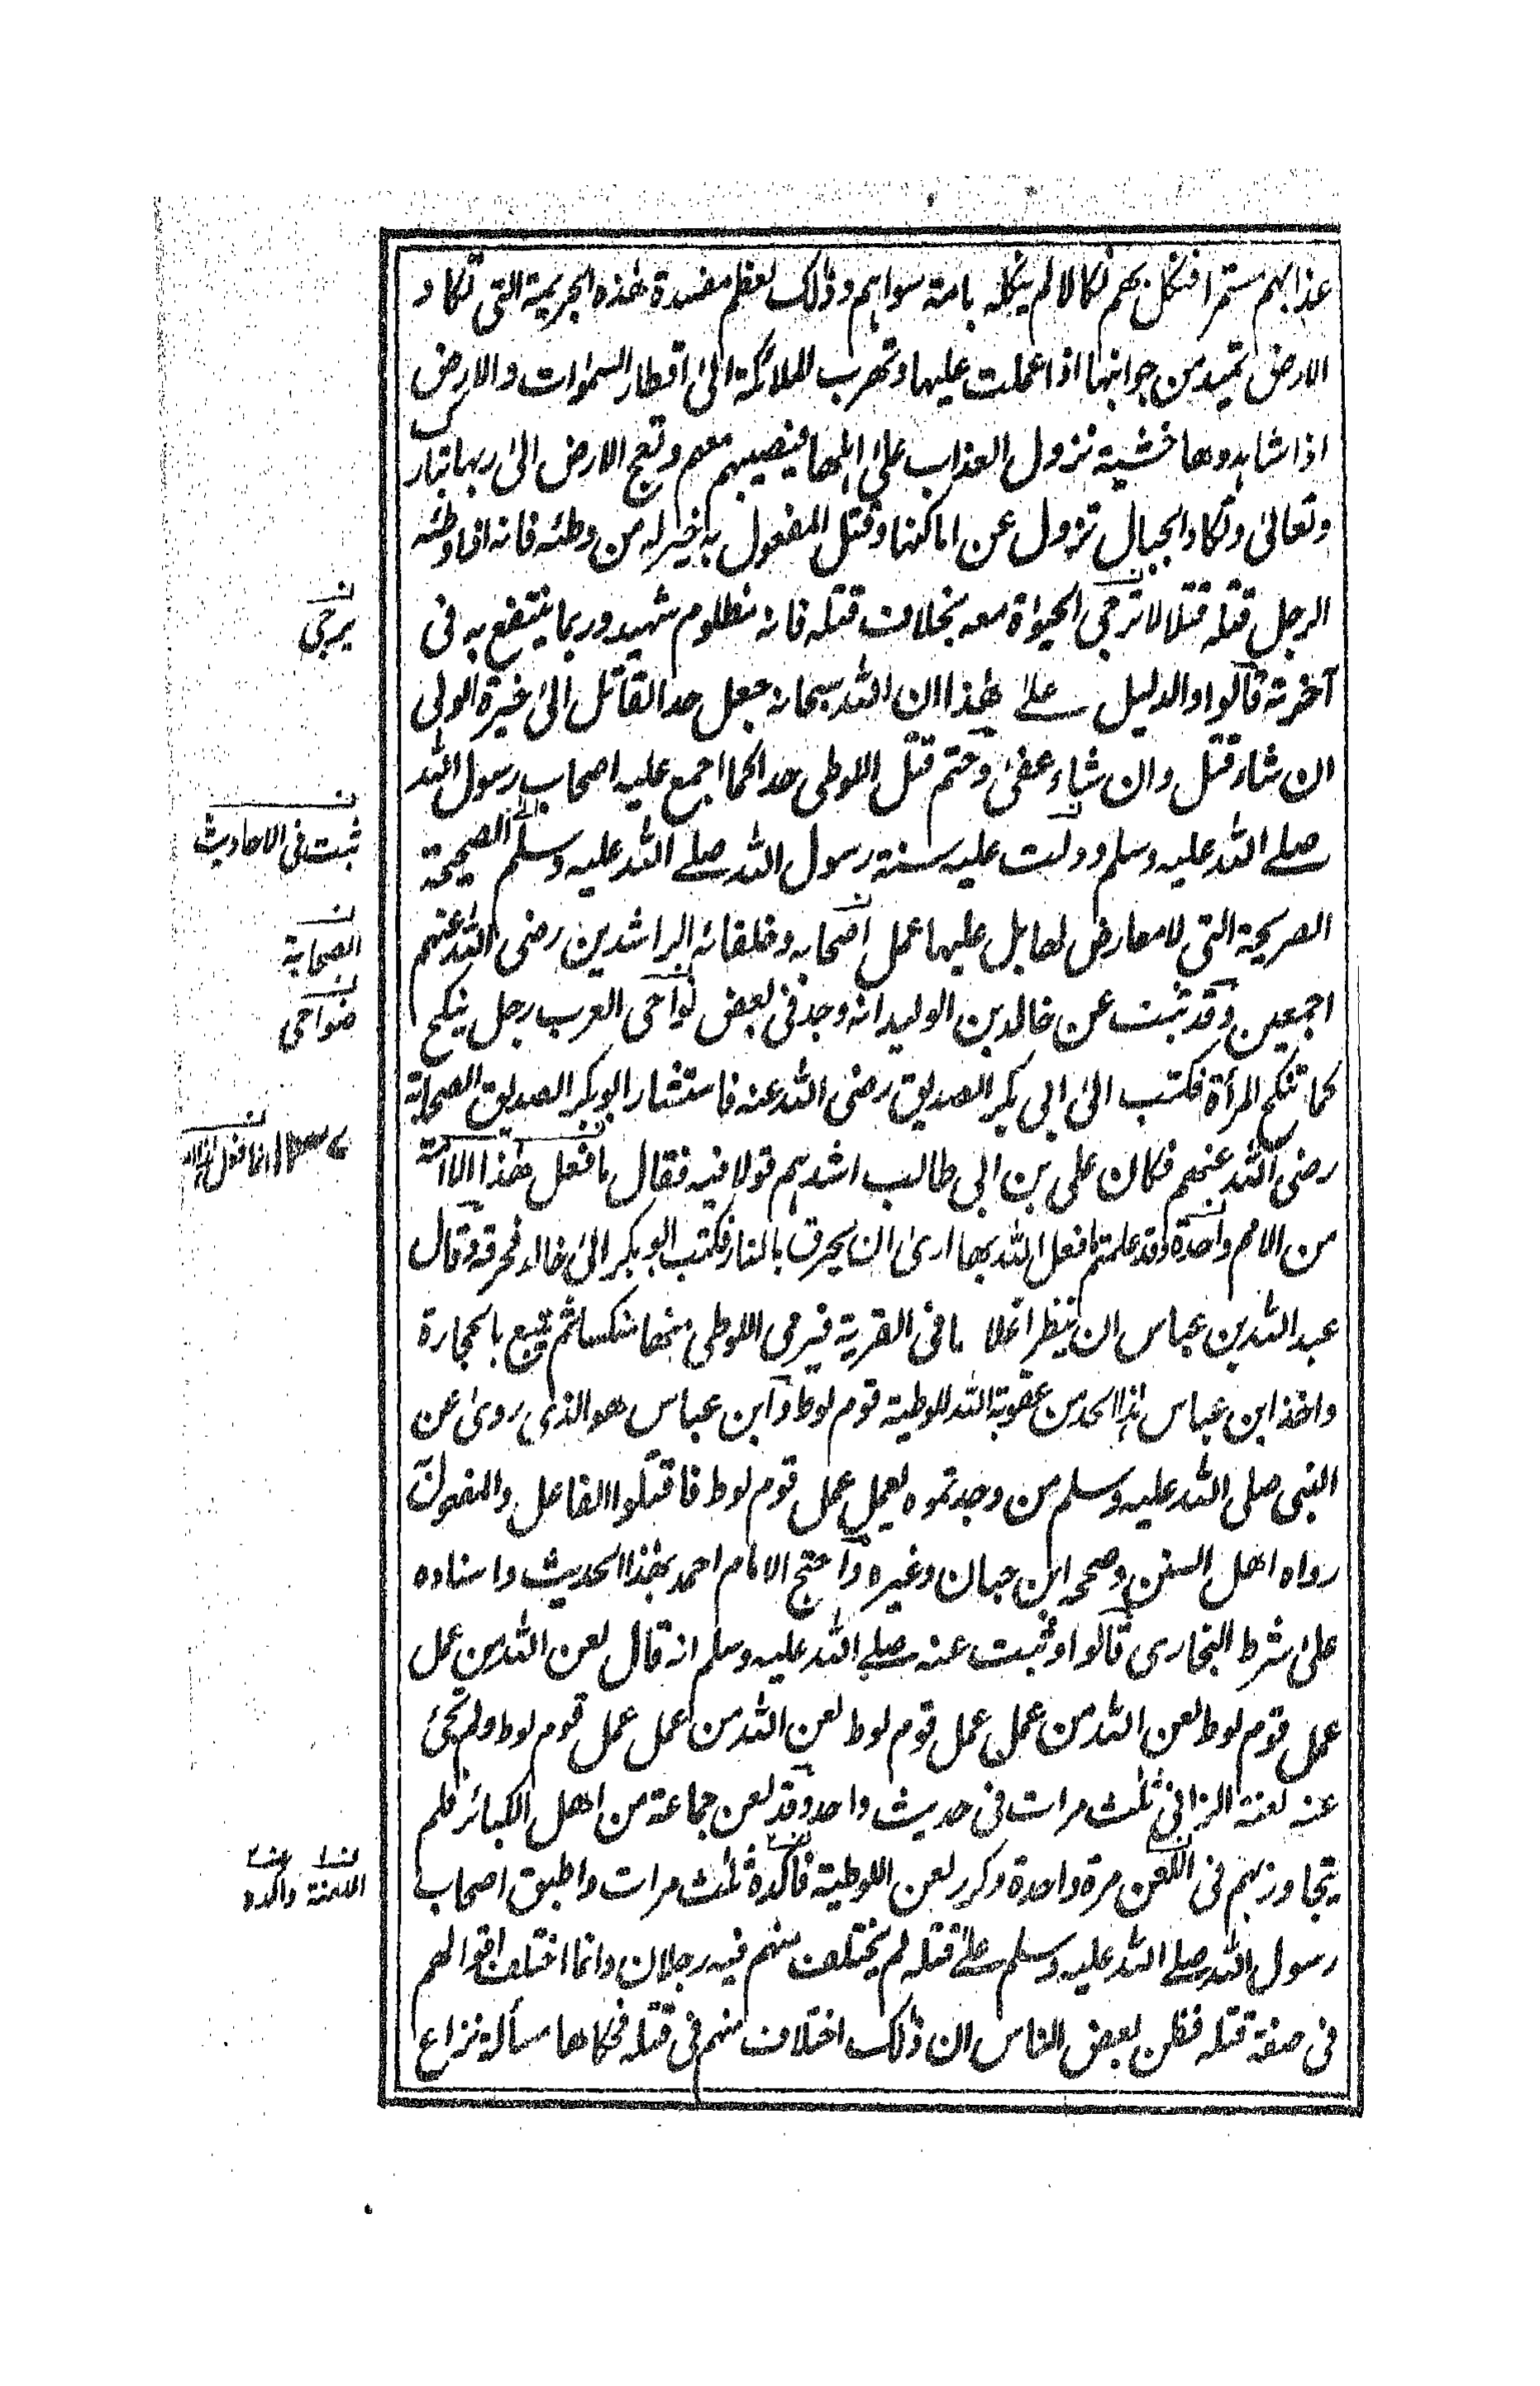 عذابهم مستمرا فنكل بهم نكالا لم ينكله بامة سواهم وذلك لعظم مفسدة هذه الجريمة التى تكاد
الارض تميد من جوانبها اذا عملت عليها وتهرب الملائكة الى اقطار السموات والارض
اذا شاهدوها خشية نزول العذاب على اهلها فيصيبهم معهم وتعج الارض الى ربها تبارك
وتعالى وتكاد الجبال تزول عن اماكنها وقتل المفعول به خير له من وطئه فانه اذا وطئه
الرجل قتله قتلا لا ترجى الحيوة معه بخلاف قتله فانه مظلوم شهيد وربما ينتفع به فى
آخرته قالوا والدليل على هذا ان الله سبحانه جعل حد القاتل الى خيرة الولى
ان شاء قتل وان شاء عفى وحتم قتل اللوطى حدا كما اجمع عليه اصحاب رسول الله
صلى الله عليه وسلم ودلت عليه سنة رسول الله صلى الله عليه وسلم الصحيحة
الصريحة التى لا معارض لها بل عليها عمل اصحابه وخلفائه الراشدين رضى الله عنهم
اجمعين وقد ثبت عن خالد بن الوليد انه وجد فى بعض نواحى العرب رجل ينكح
كما تنكح المرأة فكتب الى ابى بكر الصديق رضى الله عنه فاستشار ابو بكر الصديق الصحابة
رضى الله عنهم فكان على بن ابى طالب اشدهم قولا فيه فقال ما فعل هذا الا امة
من الامم واحدة وقد علمتم ما فعل الله بها ارى ان يحرق بالنار فكتب ابو بكر الى خالد فحرقه وقال
عبد الله بن عباس ان ينظر اعلا ما فى القرية فيرمى اللوطى منها منكسا ثم يتبع بالحجارة
واخذ ابن عباس هذا الحد من عقوبة الله للوطية قوم لوط وابن عباس هو الذى روى عن
النبى صلى الله عليه وسلم من وجدتموه يعمل عمل قوم لوط فاقتلوا الفاعل والمفعول به
رواه اهل السنن وصححه ابن حبان وغيره واحتج الامام احمد بهذا الحديث واسناده
على شرط البخارى قالوا وثبت عنه صلى الله عليه وسلم انه قال لعن الله من عمل
عمل قوم لوط لعن الله من عمل عمل قوم لوط لعن الله من عمل عمل قوم لوط ولم تجئ
عنه لعنة الزانى ثلث مرات فى حديث واحد وقد لعن جماعة من اهل الكبائر فلم
يتجاوز بهم فى اللعن مرة واحدة وكرر لعن اللوطية فاكده ثلث مرات واطبق اصحاب
رسول الله صلى الله عليه وسلم على قتله لم يختلف منهم فيه رجلان وانما اختلف اقوالهم
فى صفة قتله فظن بعض الناس ان ذلك اختلاف منهم فى قتله فحكاها مسألة نزاع
ن
يرجى
ن
ثبت فى الاحاديث
ن
الصحابة
ن
ضواحى
ن
ن١ ن٢
اللعنة واكده